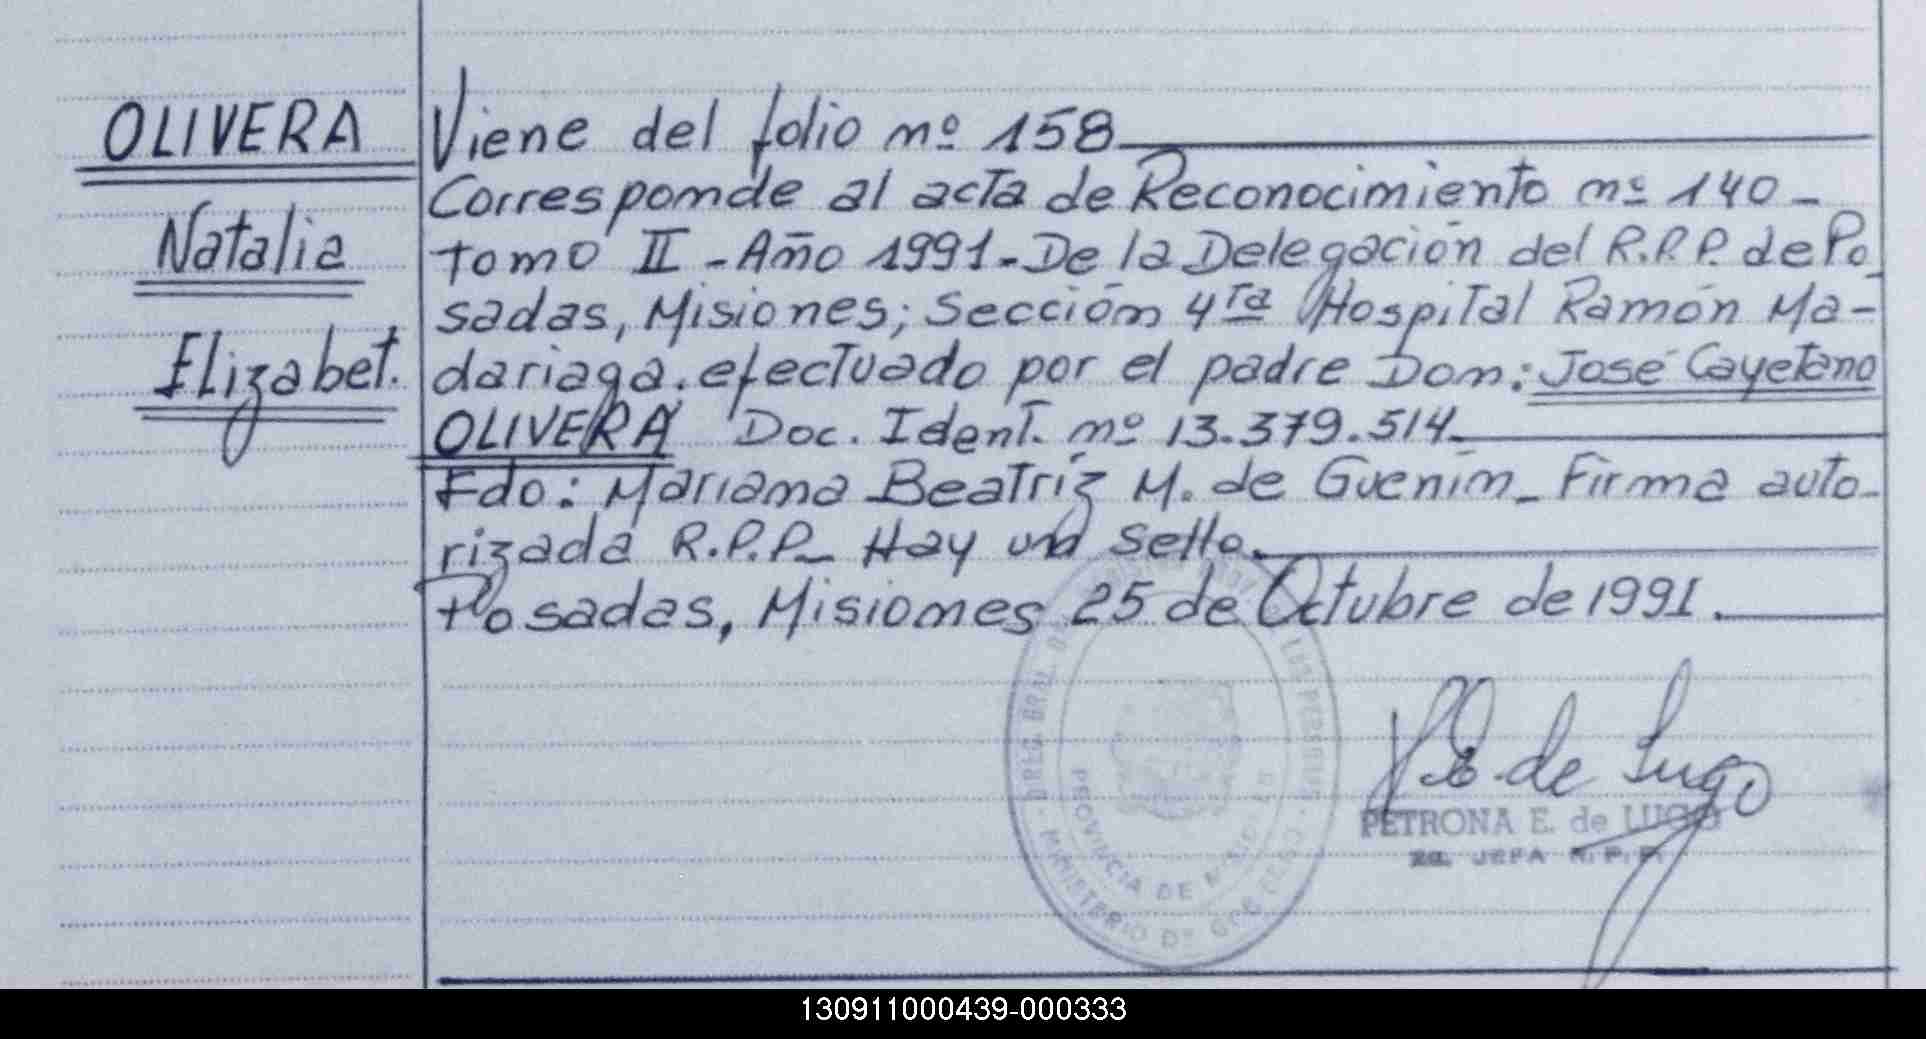 OLIVERA
Natalia
Elizabet.
Viene del folio nº 158
Corresponde al acta de Reconocimiento nº 140 -
tomo II - Año 1991 - De la Delegación del R.P.P. de Po
sadas, Misiones; Sección 4ta Hospital Ramón Ma-
dariaga. efectuado por el padre Don: José Cayetano
OLIVERA Doc. Ident. nº 13.379.514.
Fdo: Mariana Beatríz M. de Guenin - Firma auto-
rizada R.P.P - Hay un sello.
Posadas, Misiones 25 de Octubre de 1991.
PROVINCIA DE MISIONES
MINISTERIO DE GOBIERNO
P E. de Lugo
PETRONA E. de LUGO
2a. JEFA R.P.P.
130911000439-000333